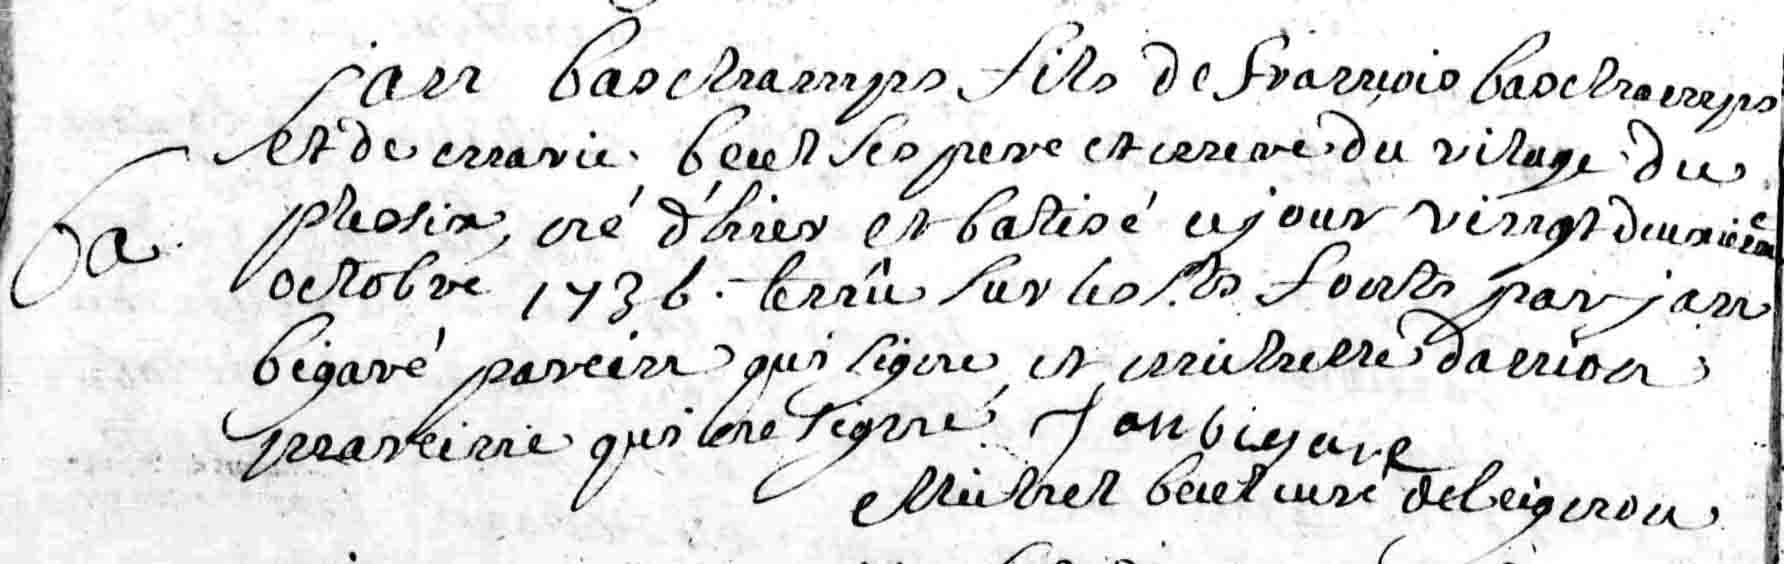 jan baschamps fils de francois baschamps
et de marie beul ses pere et mere du vilage du
plessix, né d'hier et batisé ce jour vingt deuxième
Ba
octobre 1736. tenû sur les sts fonts par jan
bigaré parein qui signe et michelle danion
mareinne qui ne signe. Jan bigare
Michel beul curé de Leignon